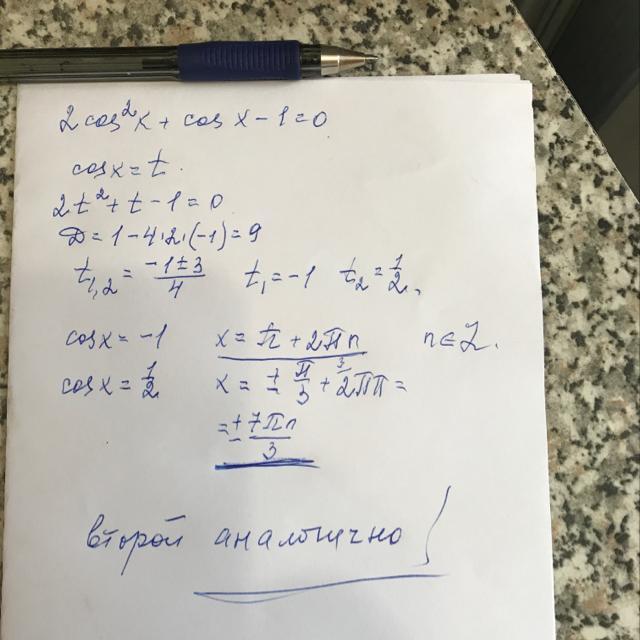 2cos²x + cos x - 1 = 0
cosx = t.
2t² + t - 1 = 0
D = 1 - 4·2·(-1) = 9
t₁,₂ = (-1±3)/4 t₁ = -1 t₂ = 1/2,
cosx = -1 x = π + 2πn n∈Z.
cosx = 1/2 x = ± π/3 + 2πn =
= ± 7πn/3
второй аналогично